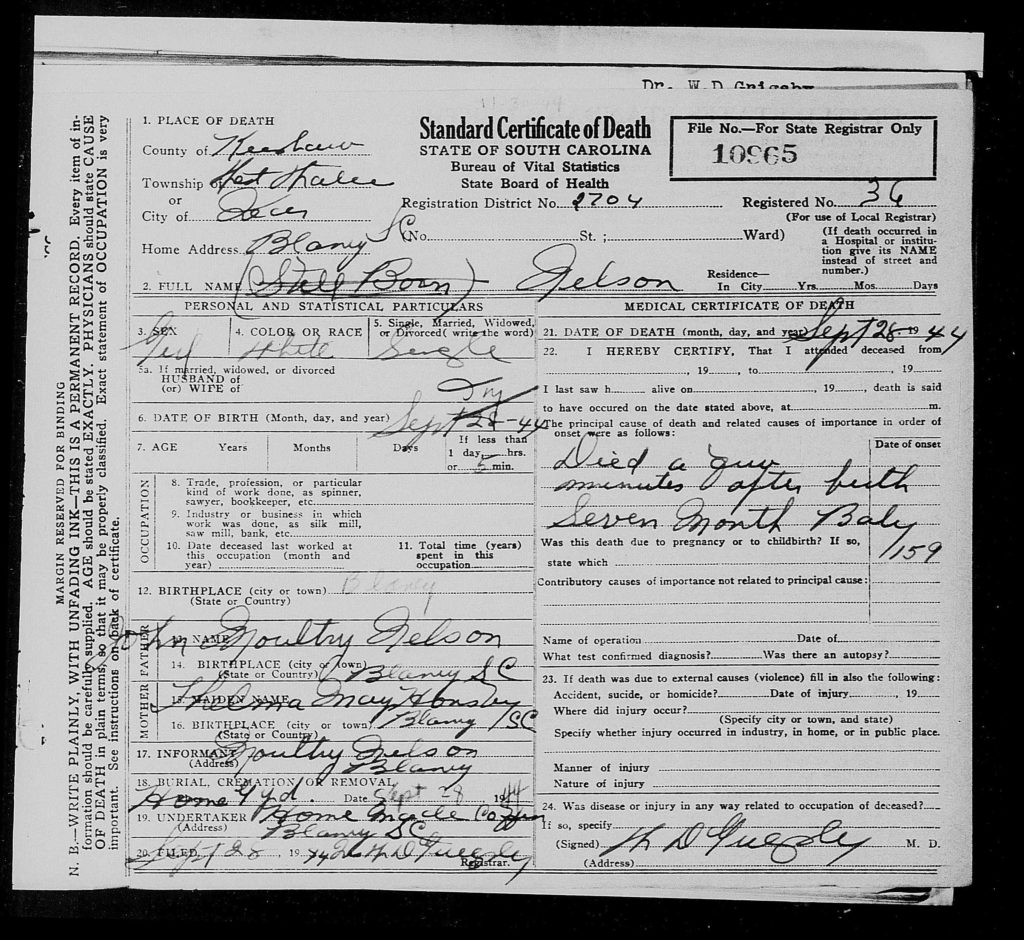 Dr. W.D.Grigsby
1. PLACE OF DEATH
County of Kershaw
Township of
or
City of
Home Address Blaney SC
Standard Certificate of Death
STATE OF SOUTH CAROLINA
Bureau of Vital Statistics
State Board of Health
Registration District No. 2704
(No. St.; Ward)
File No.—For State Registrar Only
10965
Registered No. 36
(For use of Local Registrar)
(If death occurred in
a Hospital or institu-
tion give its NAME
instead of street and
number.)
2. FULL NAME (Still Born) Nelson
Residence—
In City Yrs. Mos. Days
PERSONAL AND STATISTICAL PARTICULARS
3. SEX
4. COLOR OR RACE White
5. Single, Married, Widowed,
or Divorced (write the word)
Single
5a. If married, widowed, or divorced
HUSBAND of
(or) WIFE of
6. DATE OF BIRTH (Month, day, and year) Sept 28-44
7. AGE Years Months Days
If less than
1 day, hrs.
or 5 min.
OCCUPATION
8. Trade, profession, or particular
kind of work done, as spinner,
sawyer, bookkeeper, etc.
9. Industry or business in which
work was done, as silk mill,
saw mill, bank, etc.
10. Date deceased last worked at
this occupation (month and
year)
11. Total time (years)
spent in this
occupation
12. BIRTHPLACE (city or town) Blaney
(State or Country)
FATHER
13. NAME John Moultry Nelson
14. BIRTHPLACE (city or town) Blaney SC
(State or Country)
MOTHER
15. MAIDEN NAME Thelma May
16. BIRTHPLACE (city or town) Blaney SC
(State or Country)
17. INFORMANT Moultry Nelson
(Address) Blaney
18. BURIAL, CREMATION OR REMOVAL
Home Yd. Date Sept 28 1944
19. UNDERTAKER Home Made Coffin
(Address) Blaney SC
20. FILED Sept 28, 1944 W D Grigsby
Registrar.
MEDICAL CERTIFICATE OF DEATH
21. DATE OF DEATH (month, day, and year) Sept 28-1944
22. I HEREBY CERTIFY, That I attended deceased from
, 19 , to , 19
I last saw h alive on , 19 , death is said
to have occured on the date stated above, at m.
The principal cause of death and related causes of importance in order of
onset were as follows:
Date of onset
Died a few
minutes after birth
Seven Month Baby
159
Was this death due to pregnancy or to childbirth? If so,
state which
Contributory causes of importance not related to principal cause:
Name of operation Date of
What test confirmed diagnosis? Was there an autopsy?
23. If death was due to external causes (violence) fill in also the following:
Accident, suicide, or homicide? Date of injury , 19
Where did injury occur?
(Specify city or town, and state)
Specify whether injury occurred in industry, in home, or in public place.
Manner of injury
Nature of injury
24. Was disease or injury in any way related to occupation of deceased?
If so, specify
(Signed) W D Grigsby M. D.
(Address)
MARGIN RESERVED FOR BINDING
N. B.—WRITE PLAINLY, WITH UNFADING INK—THIS IS A PERMANENT RECORD. Every item of in-
formation should be carefully supplied. AGE should be stated EXACTLY. PHYSICIANS should state CAUSE
OF DEATH in plain terms, so that it may be properly classified. Exact statement of OCCUPATION is very
important. See instructions on back of certificate.